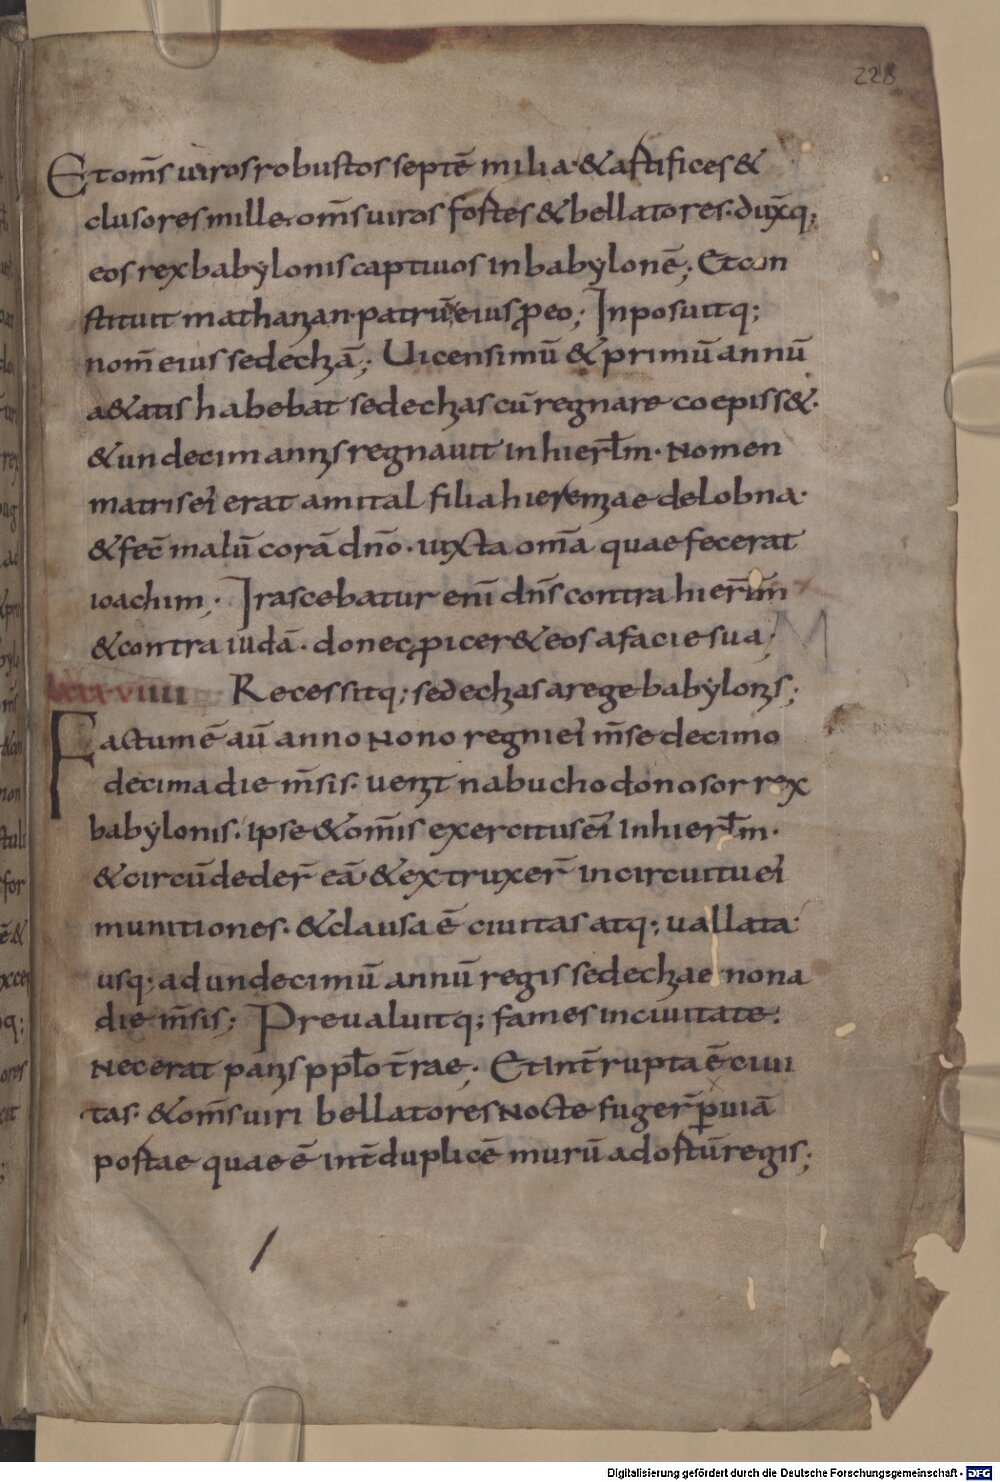 228
Et om̄s uiros robustos septē milia · & artifices &
clusores mille. om̄s uiros fortes & bellatores · dux̄q;
eos rex babẏlonis captiuos in babẏlonē; Et con
stituit mathanian · patruū eius ꝓ eo; Inposuitq;
nom̄ eius sedechiā; Uicensimū & primū annū
a&atis habebat sedechias cū regnare coepiss& ·
& undecim annis regnauit in hierl̄m · Nomen
matris ei erat amital filia hieremiae de lobna ·
& fec̄ malū corā dn̄o · iuxta om̄a quae fecerat
ioachim; Irascebatur enī dn̄s contra hierl̄m
& contra iudā · donec ꝓicer& eos a facie sua;
lxxxviiii Recessitq; sedechias a rege babẏlonis;
Factum ē aū anno nono regni ei m̄se decimo
decima die m̄sis · uenit nabuchodonosor rex
babẏlonis · ipse & om̄is exercitus eī in hierl̄m ·
& circūdeder̄ eā & extruxer̄ in circuitu ei
munitiones · & clausa ē ciuitas atq; uallata ·
usq; ad undecimū annū regis sedechiae nona
die m̄sis; Preualuitq; fames in ciuitate ·
Nec erat panis ppl̄o t̄rae; Et int̄rupta ē ciui
tas · & om̄s uiri bellatores nocte fuger̄ p̱ uiā
portae quae ē int̄ duplicē murū ad ortū regis;
Digitalisierung gefördert durch die Deutsche Forschungsgemeinschaft - DFG